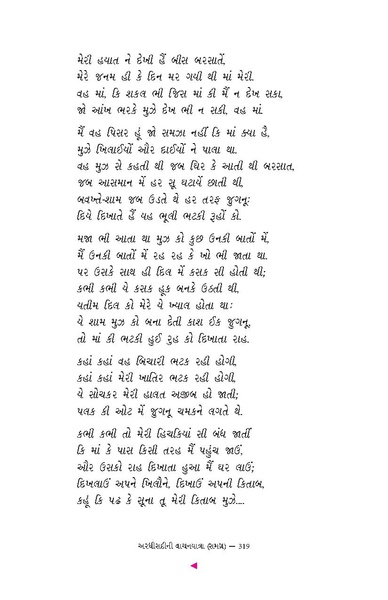 મેરી હયાત ને દેખી હૈં બીસ બરસાતેં,
મેરે જનમ હી કે દિન મર ગયી થી માં મેરી.
વહ માં, કિ શકલ ભી જિસ માં કી મૈં ન દેખ સકા,
જો આંખ ભરકે મુઝે દેખ ભી ન સકી, વહ માં.
મૈં વહ પિસર હૂં જો સમઝા નહીં કિ માં ક્યા હૈ,
મુઝે ખિલાઈયોં ઔર દાઈયોં ને પાલા થા.
વહ મુઝ સે કહતી થી જબ ઘિર કે આતી થી બરસાત,
જબ આસમાન મેં હર સૂ ઘટાયેં છાતી થી,
બવખ્તે-શામ જબ ઉડતે થે હર તરફ જુગનૂ:
દિયે દિખાતે હૈં યહ ભૂલી ભટકી રૂહોં કો.
મજા ભી આતા થા મુઝ કો કુછ ઉનકી બાતોં મેં,
મૈં ઉનકી બાતોં મેં રહ રહ કે ખો ભી જાતા થા.
પર ઉસકે સાથ હી દિલ મેં કસક સી હોતી થી;
કભી કભી યે કસક હૂક બનકે ઉઠતી થી,
યતીમ દિલ કો મેરે યે ખ્યાલ હોતા થા:
યે શામ મુઝ કો બના દેતી કાશ ઈક જુગનૂ,
તો માં કી ભટકી હુઈ રુહ કો દિખાતા રાહ.
કહાં કહાં વહ બિચારી ભટક રહી હોગી,
કહાં કહાં મેરી ખાતિર ભટક રહી હોગી,
યે સોચકર મેરી હાલત અજીબ હો જાતી;
પલક કી ઓટ મેં જુગનૂ ચમકને લગતે થે.
કભી કભી તો મેરી હિચકિયાં સી બંધ જાતીં
કિ માં કે પાસ કિસી તરહ મૈં પહુંચ જાઉં,
ઔર ઉસકો રાહ દિખાતા હુઆ મૈં ઘર લાઉં;
દિખલાઉં અપને ખિલૌને, દિખાઉં અપની કિતાબ,
કહૂં કિ પઢ કે સૂના તૂ મેરી કિતાબ મુઝે....
અરધીસદીની વાચનયાત્રા (સમગ્ર) — 319